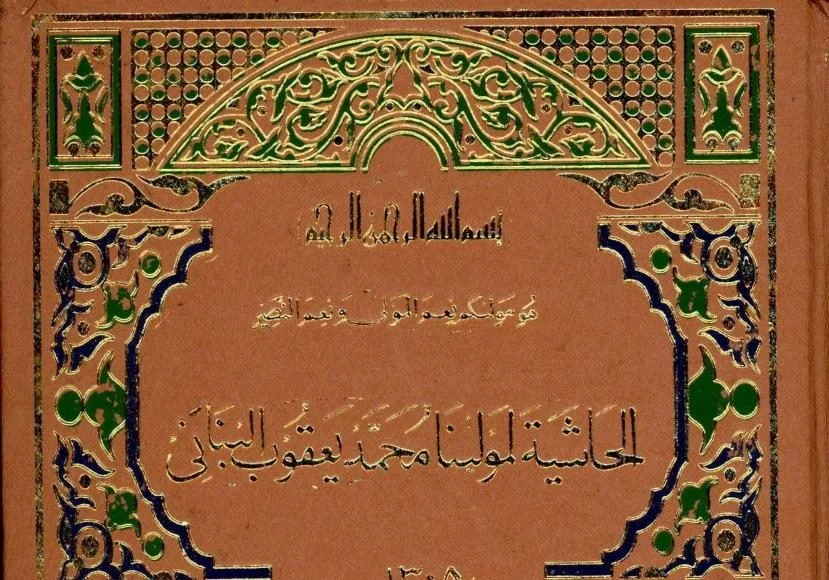 بسم الله الرحمن الرحيم
هو مولىكم نعم المولى ونعم النصير
الحاشية لمولينا محمد يعقوب البناني
١٣٠٨